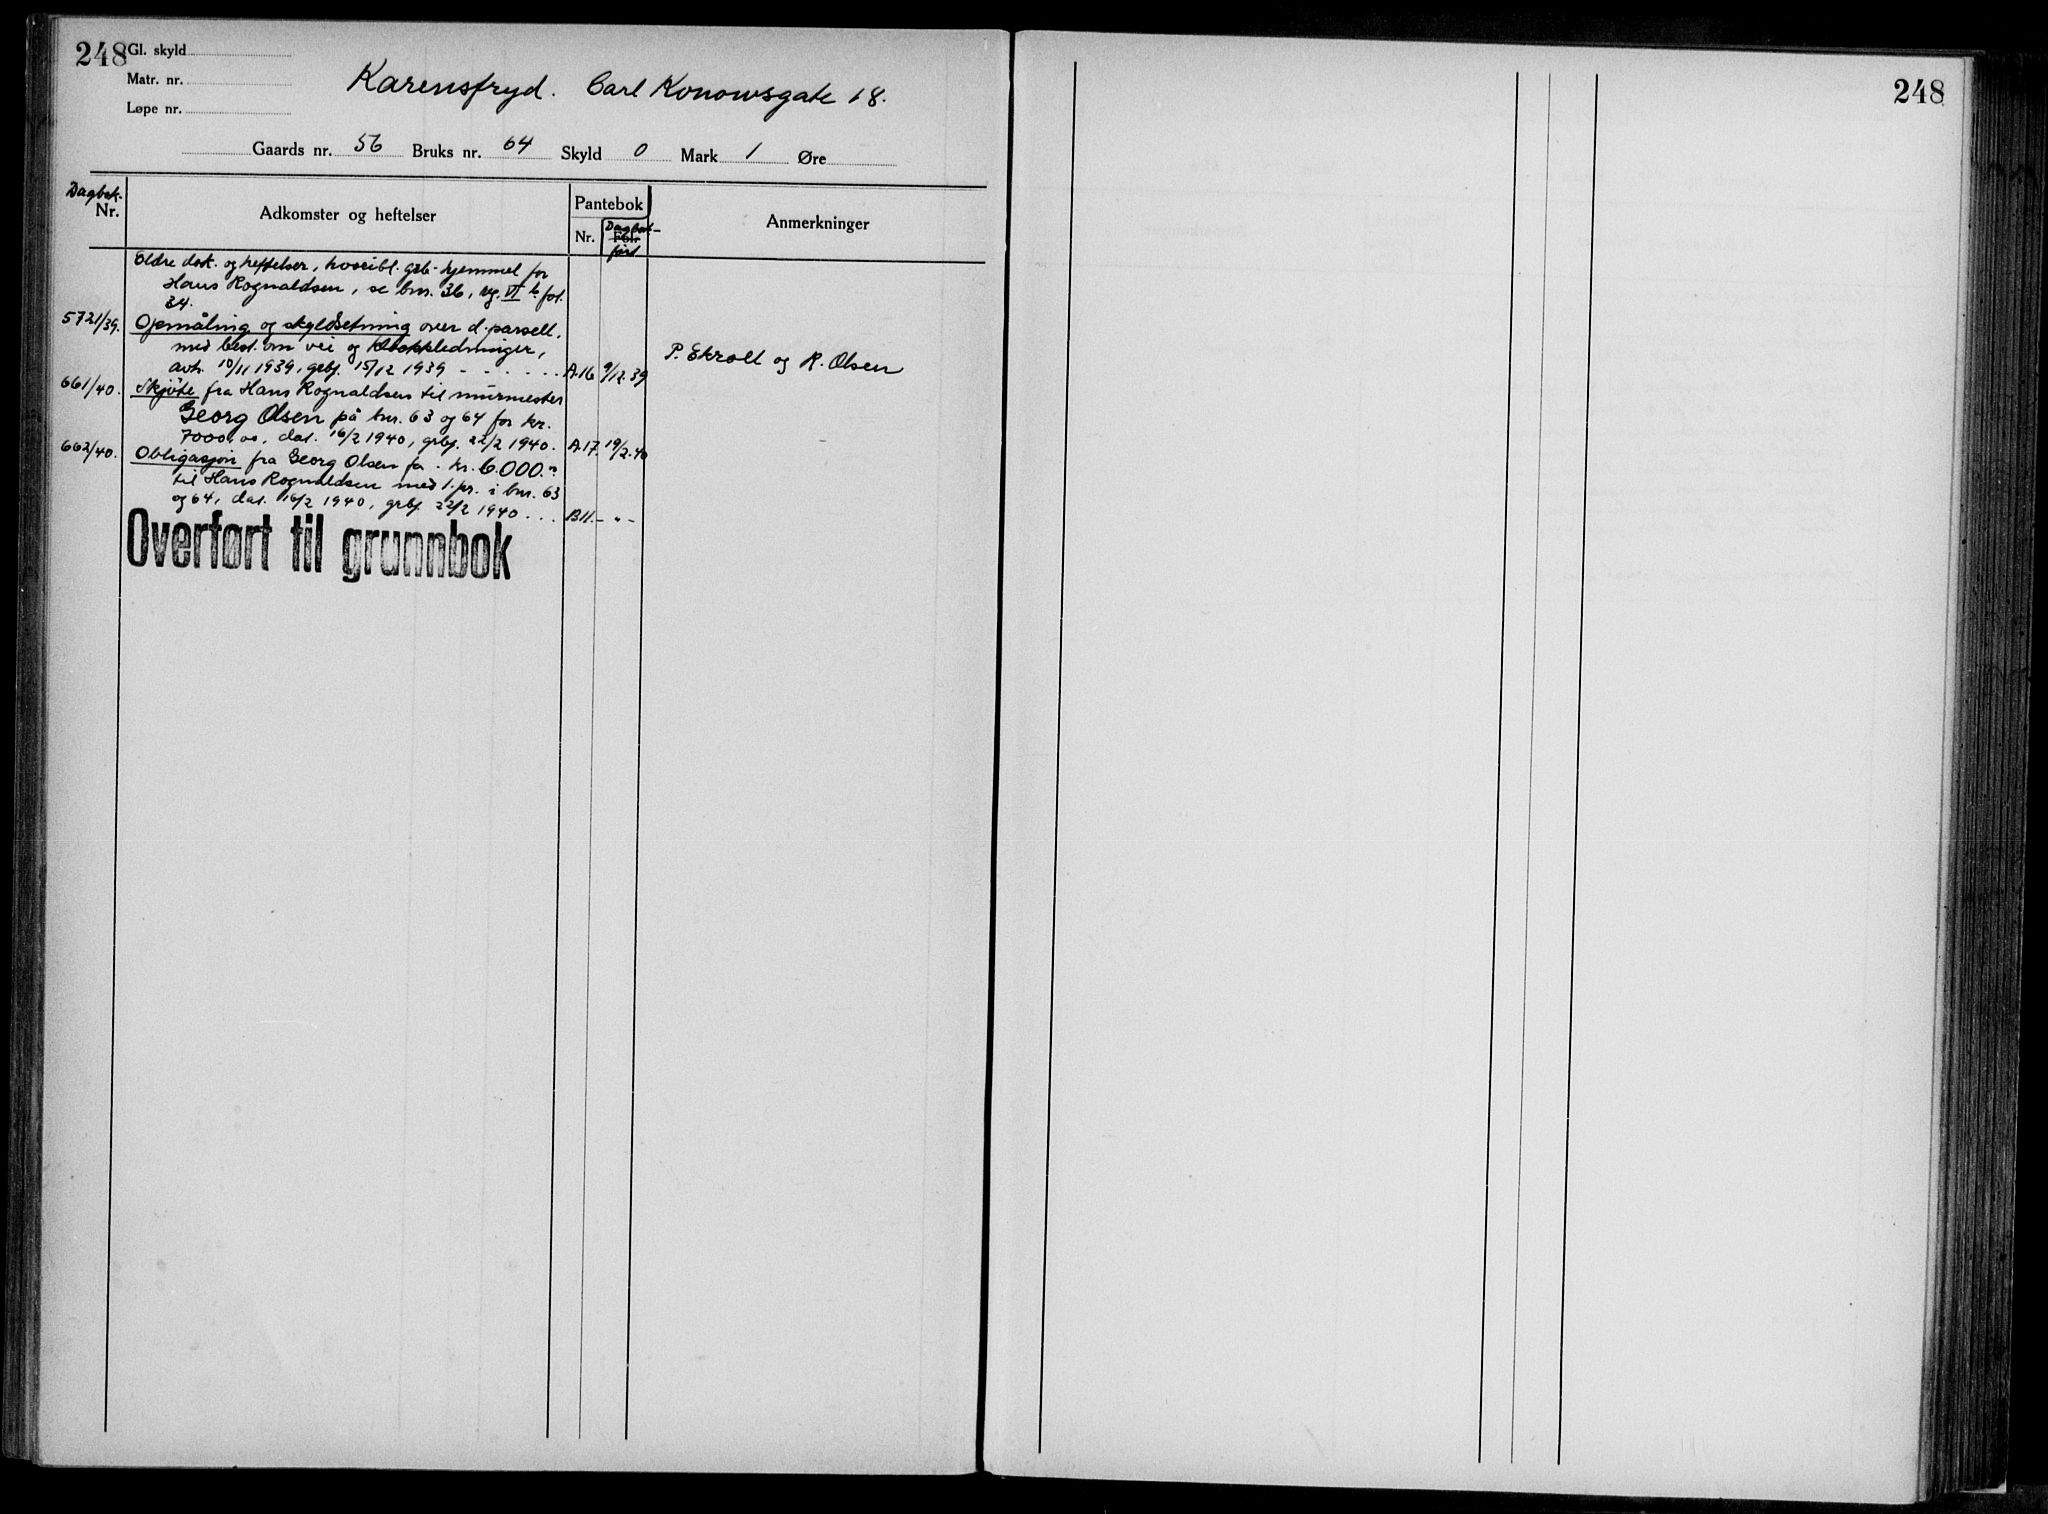 248 Gl. skyld
Matr. nr.
Løpe nr.
Karensfryd. Carl Konowsgate 18.
248
Gaards nr. 56 Bruks nr. 64 Skyld 0 Mark 1 Øre
Dagbok.
Nr.
Adkomster og heftelser
Pantebok
Nr. Fol.
Dagbok-
ført
Anmerkninger
Eldre dok. og heftelser, hvoribl. grb. hjemmel for
Hans Rognaldsen, se bnr. 36, rg. VI b fol.
34.
5721/39. Opmåling og skyldsetning over d. parsell,
med best. om vei og kloakkledninger,
avh. 10/11 1939, grbf. 15/12 1939 - - - - - - A.16 9/12.39
P. Ekrolt og R. Olsen
661/40. Skjöte fra Hans Rognaldsen til murmester
Georg Olsen på bnr. 63 og 64 for kr.
7000,00, dat. 16/2 1940, grbf. 22/2 1940. A.17. 19/2.40
662/40. Obligasjon fra Georg Olsen for kr. 6.000.-
til Hans Rognaldsen med 1. pr. i bnr. 63
og 64, dat. 16/2 1940, grbf. 22/2 1940 . . . B11. - " -
Overført til grunnbok